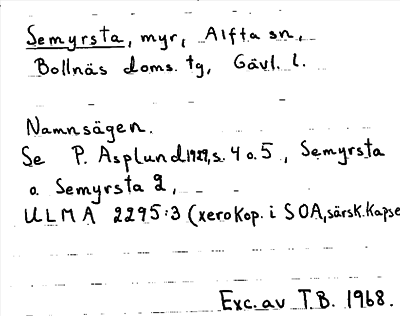 Semyrsta, myr, Alfta sn,
Bollnäs doms. tg, Gävl. l.
Namnsägen.
Se P. Asplund 1929, s. 4 o. 5, Semyrsta
o. Semyrsta 2,
ULMA 2295:3 (xerokop. i SOA, särsk. kapse
Exc. av T.B. 1968.